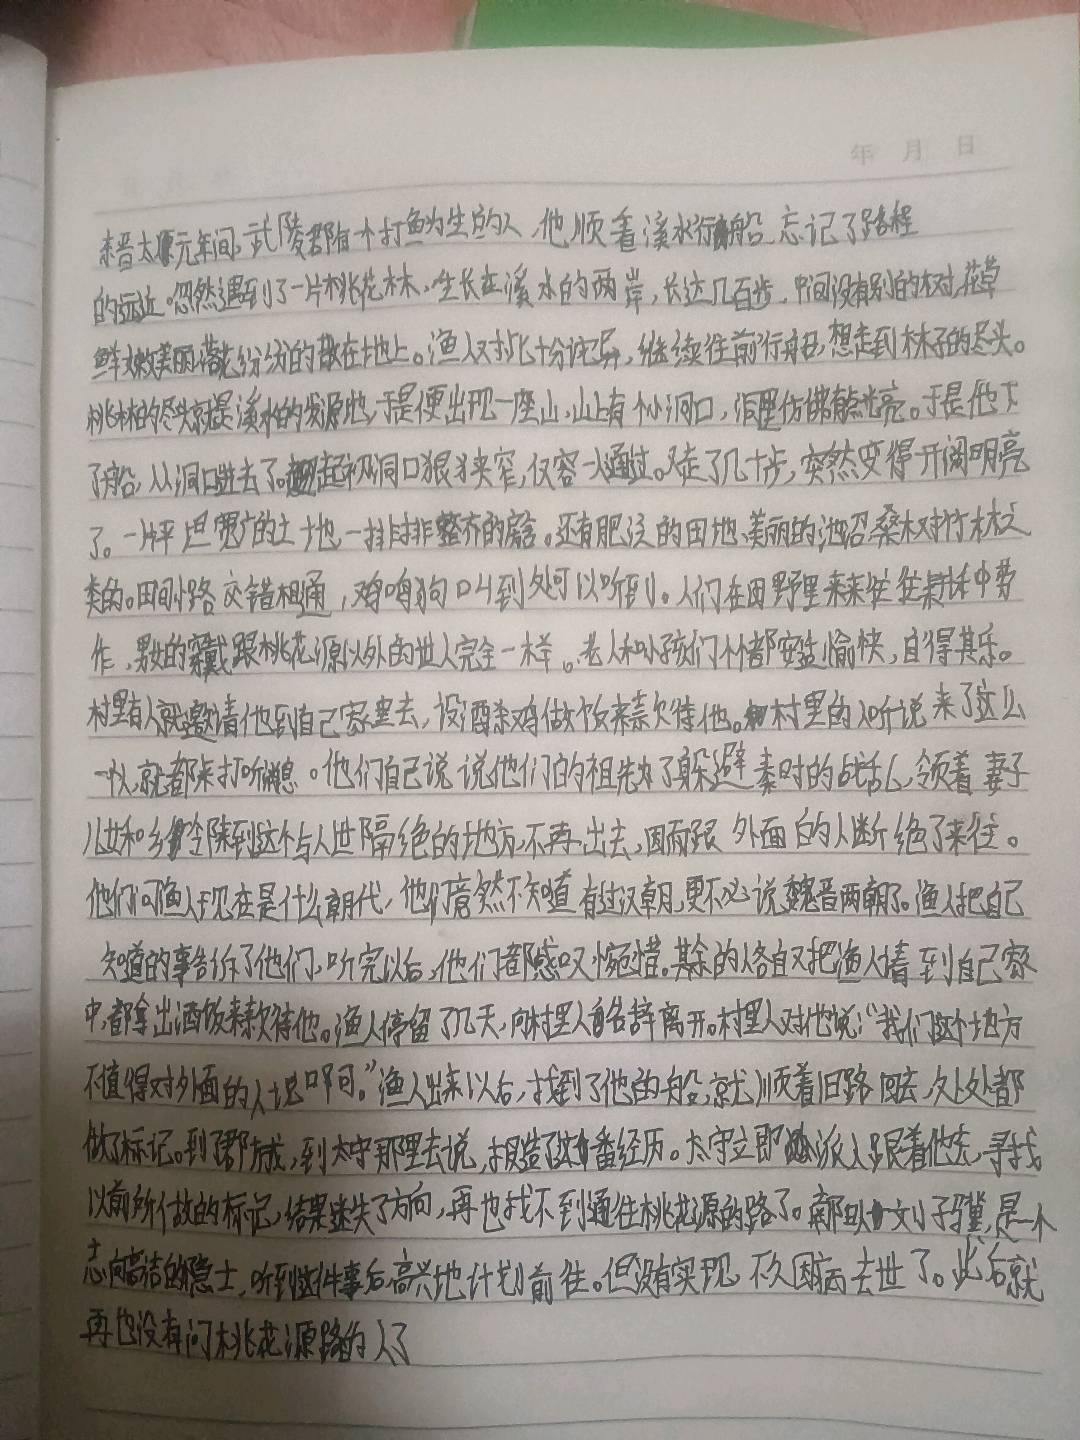 年 月 日
东晋太原元年间,武陵郡有一个打鱼为生的人,他顺着溪水行船,忘记了路程
的远近。忽然遇到了一片桃花林,生长在溪水的两岸,长达几百步,中间没有别的树,花草
鲜嫩美丽,落花纷纷的散在地上。渔人对此十分诧异,继续往前行船,想走到林子的尽头。
桃林的尽头就是溪水的发源地,于是便出现一座山,山上有个小洞口,洞里仿佛有点光亮。于是他下
了船,从洞口进去了。起初洞口很狭窄,仅容一人通过。又走了几十步,突然变得开阔明亮
了。一片平坦宽广的土地,一排排整齐的房舍。还有肥沃的田地、美丽的池沼,桑树竹林之
类的。田间小路交错相通,鸡鸣狗叫到处可以听到。人们在田野里来来往往耕种劳
作,男女的穿戴跟桃花源以外的世人完全一样。老人和小孩们个个都安逸愉快,自得其乐。
村里有人就邀请他到自己家里去,设酒杀鸡做饭来款待他。村里的人听说来了这么
一个人,就都来打听消息。他们自己说说他们的祖先为了躲避秦时的战乱,领着妻子
儿女和乡邻来到这个与人世隔绝的地方,不再出去,因而跟外面的人断绝了来往。
他们问渔人现在是什么朝代,他们竟然不知道有过汉朝,更不必说魏晋两朝了。渔人把自己
知道的事告诉了他们,听完以后,他们都感叹惋惜。其余的人各自又把渔人请到自己家
中,都拿出酒饭来款待他。渔人停留了几天,向村里人告辞离开。村里人对他说:“我们这个地方
不值得对外面的人说啊。”渔人出来以后,找到了他的船,就顺着旧路回去,处处都
做了标记。到了郡城,到太守那里去说,报告了这番经历。太守立即派人跟着他去,寻找
以前所做的标记,结果迷失了方向,再也找不到通往桃花源的路了。南阳人刘子骥,是一个
志向高洁的隐士,听到这件事后高兴地计划前往。但没有实现,不久因病去世了。此后就
再也没有问桃花源路的人了